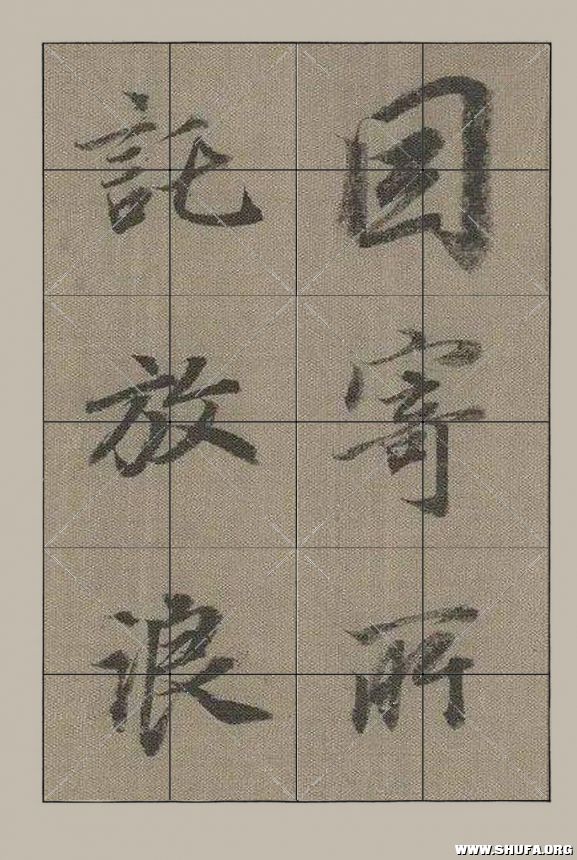 因寄所
託放浪
WWW.SHUFA.ORG